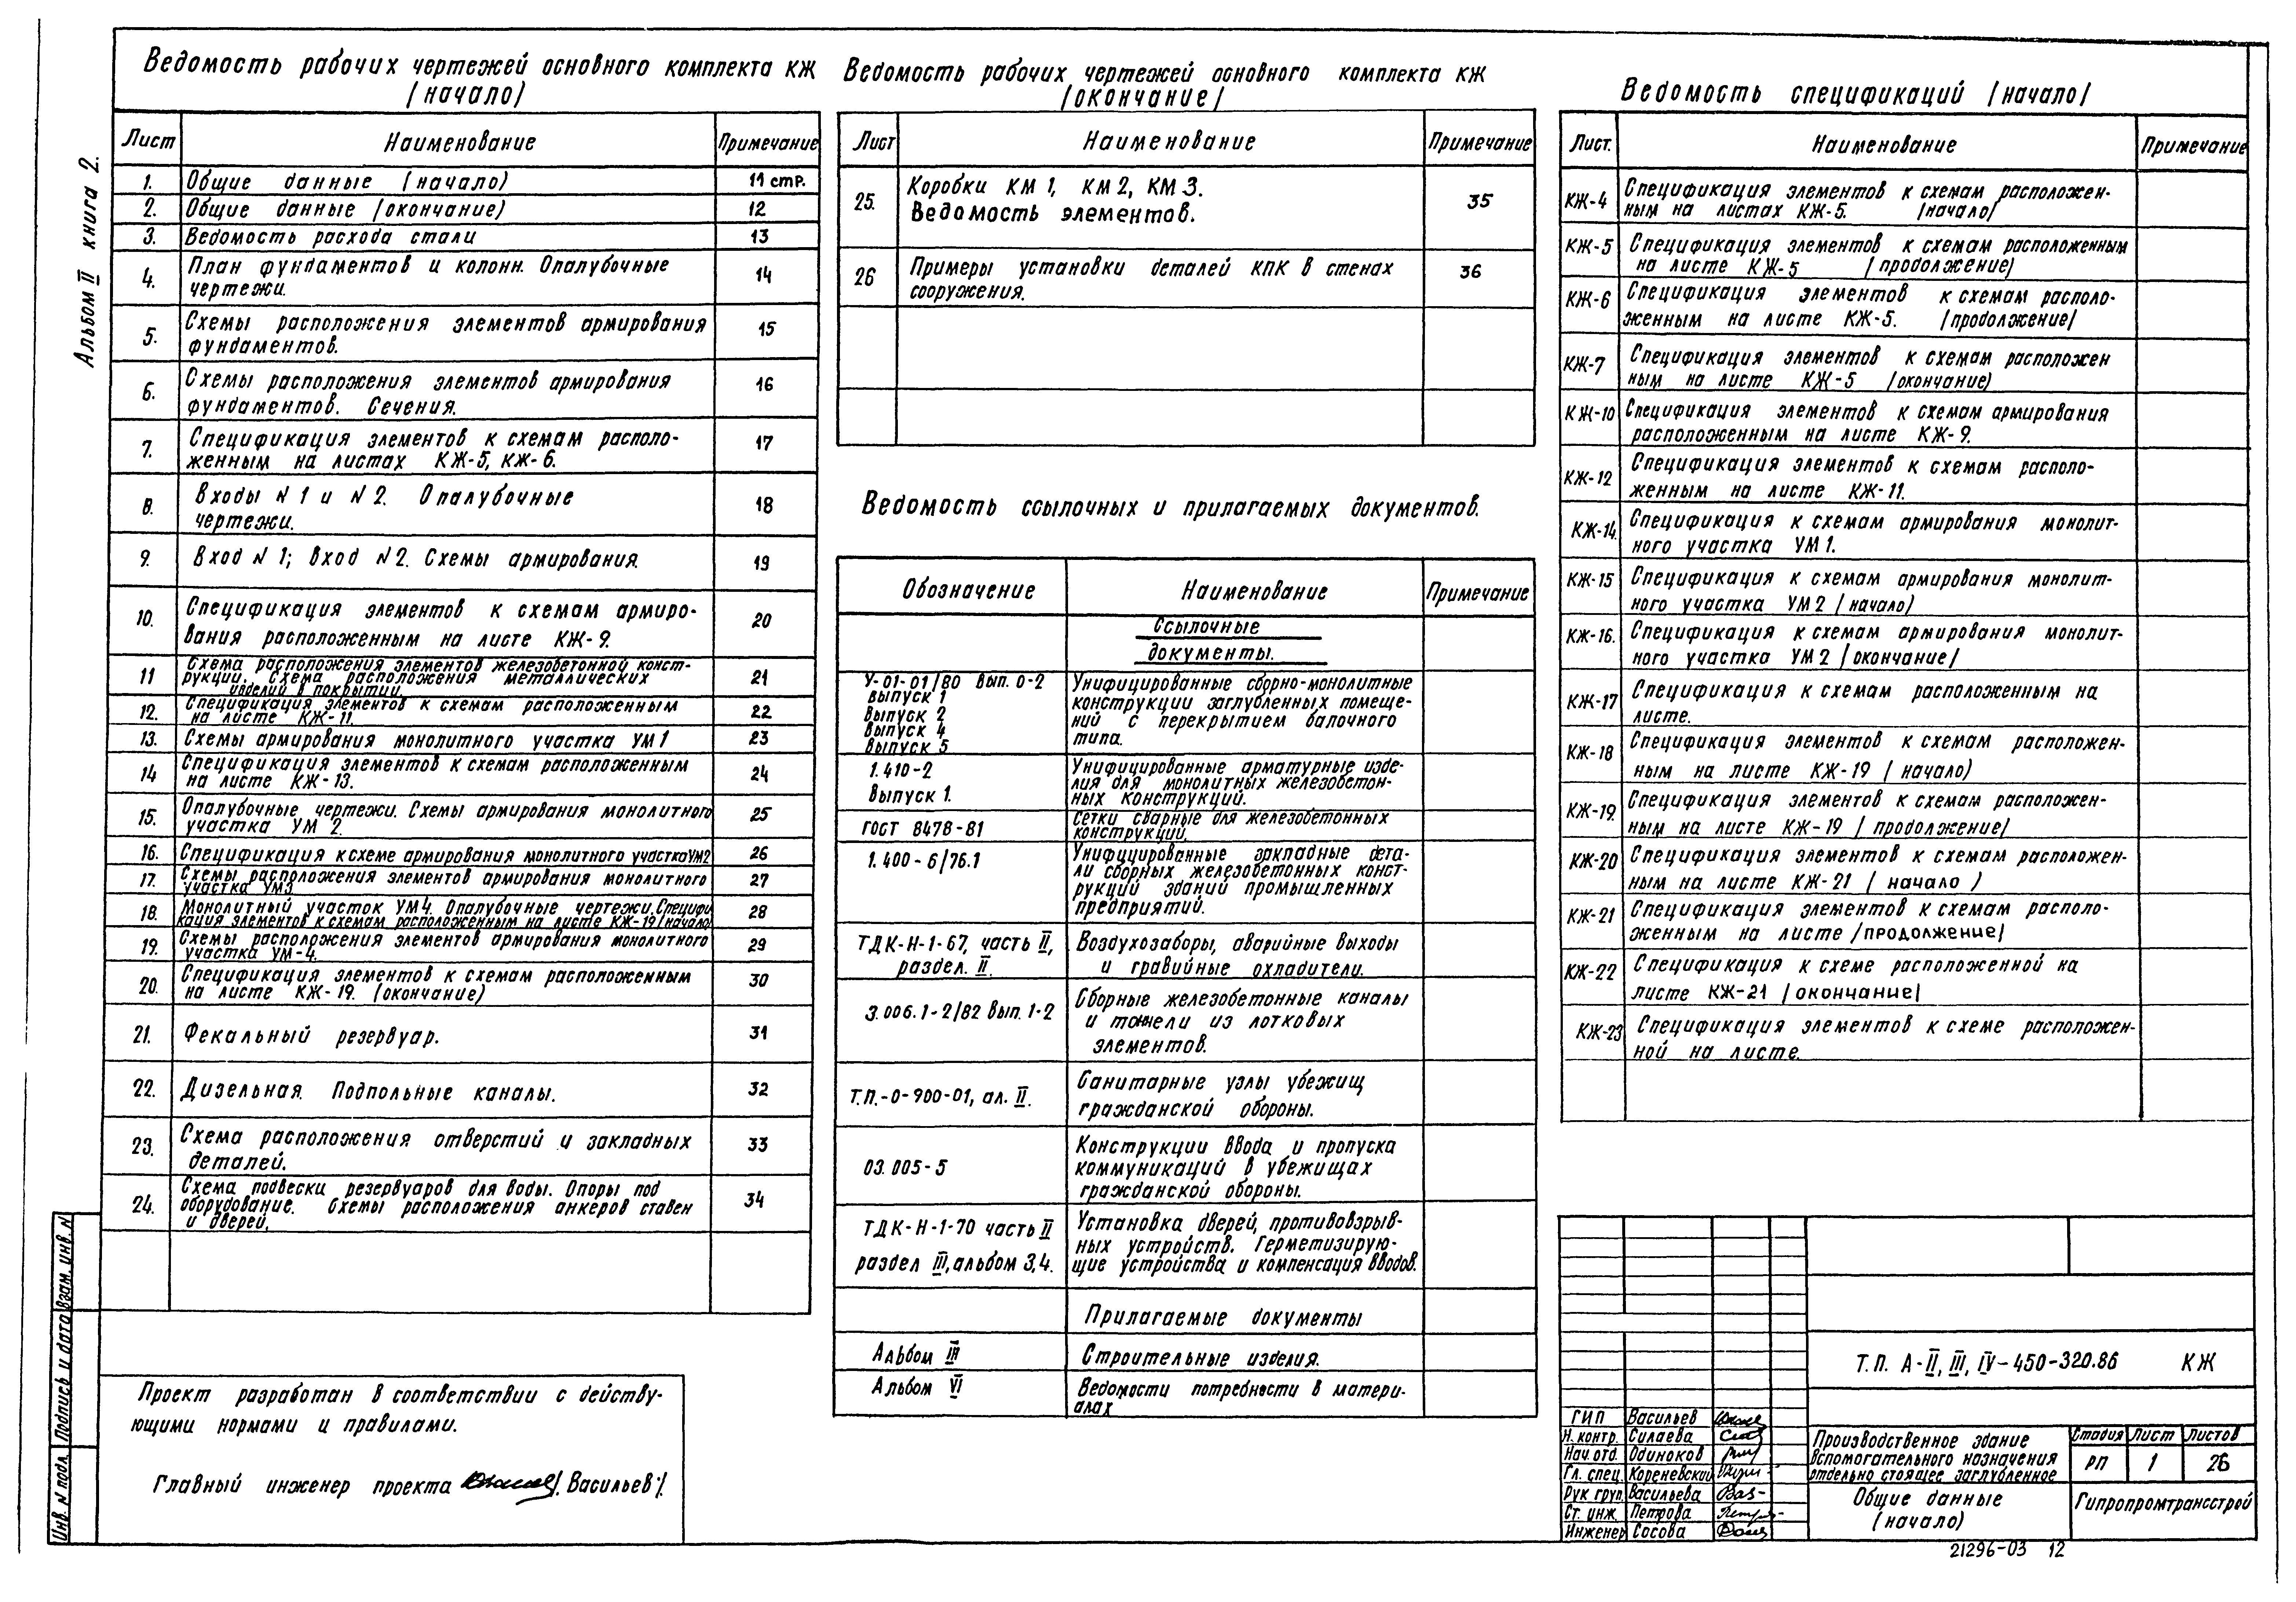 Альбом II книга 2.
Ведомость рабочих чертежей основного комплекта КЖ
/начало/
Лист Наименование Примечание
1. Общие данные (начало) 11 стр.
2. Общие данные /окончание) 12
3. Ведомость расхода стали 13
4. План фундаментов и колонн. Опалубочные
чертежи. 14
5. Схемы расположения элементов армирования
фундаментов. 15
6. Схемы расположения элементов армирования
фундаментов. Сечения. 16
7. Спецификация элементов к схемам располо-
женным на листах КЖ-5, КЖ-6. 17
8. Входы N 1 и N 2. Опалубочные
чертежи. 18
9. Вход N 1; вход N2. Схемы армирования. 19
10. Спецификация элементов к схемам армиро-
вания расположенным на листе КЖ-9. 20
11 Схема расположения элементов железобетонной конст-
рукции. Схема расположения металлических
изделий в покрытии. 21
12. Спецификация элементов к схемам расположенным
на листе КЖ-11. 22
13. Схемы армирования монолитного участка УМ1 23
14 Спецификация элементов к схемам расположенным
на листе КЖ-13. 24
15. Опалубочные чертежи. Схемы армирования монолитного
участка УМ 2. 25
16. Спецификация к схеме армирования монолитного участка УМ2 26
17. Схемы расположения элементов армирования монолитного
участка УМ3 27
18. Монолитный участок УМ4. Опалубочные чертежи. Специфи
кация элементов к схемам расположенным на листе КЖ-19/начало 28
19. Схемы расположения элементов армирования монолитного
участка УМ-4. 29
20. Спецификация элементов к схемам расположенным
на листе КЖ-19. (окончание) 30
21. Фекальный резервуар. 31
22. Дизельная. Подпольные каналы. 32
23. Схема расположения отверстий и закладных
деталей. 33
24. Схема подвески резервуаров для воды. Опоры под
оборудование. Схемы расположения анкеров ставен
и дверей. 34
Проект разработан в соответствии с действу-
ющими нормами и правилами.
Главный инженер проекта /Васильев/.
Взам. инв. N
Подпись и дата
Инв. N подл.
Ведомость рабочих чертежей основного комплекта КЖ
/окончание/
Лист Наименование Примечание
25. Коробки КМ 1, КМ 2, КМ 3.
Ведомость элементов. 35
26 Примеры установки деталей КПК в стенах
сооружения. 36
Ведомость ссылочных и прилагаемых документов.
Обозначение Наименование Примечание
Ссылочные
документы.
У-01-01/80 вып. 0-2 Унифицированные сборно-монолитные
выпуск 1 конструкции заглубленных помеще-
выпуск 2 ний с перекрытием балочного
выпуск 4 типа.
выпуск 5
1.410-2 Унифицированные арматурные изде-
лия для монолитных железобетон-
выпуск 1. ных конструкций.
ГОСТ 8478-81 Сетки сварные для железобетонных
конструкций.
1.400-6/76.1 Унифицированные закладные дета-
ли сборных железобетонных конст-
рукций зданий промышленных
предприятий.
ТДК-Н-1-67, часть II, Воздухозаборы, аварийные выходы
раздел. II. и гравийные охладители.
3.006.1-2/82 вып. 1-2 Сборные железобетонные каналы
и тоннели из лотковых
элементов.
Т.П.-0-900-01, ал. II. Санитарные узлы убежищ
гражданской обороны.
03.005-5 Конструкции ввода и пропуска
коммуникаций в убежищах
гражданской обороны.
ТДК-Н-1-70 часть II Установка дверей, противовзрыв-
ных устройств. Герметизирую-
раздел III, альбом 3,4. щие устройства и компенсация вводов.
Прилагаемые документы
Альбом III Строительные изделия.
Альбом VI Ведомости потребности в матери-
алах
Ведомость спецификаций /начало/
Лист. Наименование Примечание
КЖ-4 Спецификация элементов к схемам расположен-
ным на листах КЖ-5. /начало/
КЖ-5 Спецификация элементов к схемам расположенным
на листе КЖ-5 /продолжение/
КЖ-6 Спецификация элементов к схемам располо-
женным на листе КЖ-5. /продолжение/
КЖ-7 Спецификация элементов к схемам расположен
ным на листе КЖ-5 /окончание)
КЖ-10 Спецификация элементов к схемам армирования
расположенным на листе КЖ-9.
КЖ-12 Спецификация элементов к схемам располо-
женным на листе КЖ-11.
КЖ-14. Спецификация к схемам армирования монолит-
ного участка УМ1.
КЖ-15 Спецификация к схемам армирования монолит-
ного участка УМ2 / начало)
КЖ-16. Спецификация к схемам армирования монолит-
ного участка УМ2 /окончание/
КЖ-17 Спецификация к схемам расположенным на
листе.
КЖ-18 Спецификация элементов к схемам расположен-
ным на листе КЖ-19 / начало)
КЖ-19. Спецификация элементов к схемам расположен-
ным на листе КЖ-19 / продолжение/
КЖ-20 Спецификация элементов к схемам расположен-
ным на листе КЖ-21 ( начало )
КЖ-21 Спецификация элементов к схемам располо-
женным на листе /продолжение/
КЖ-22 Спецификация к схеме расположенной на
листе КЖ-21 /окончание/
КЖ-23 Спецификация элементов к схеме расположен-
ной на листе.
Т.П. А-II, III, IV-450-320.86 КЖ
ГИП Васильев
Н. контр. Силаева
Нач. отд. Одиноков
Гл. спец. Кореневский
Рук груп. Васильева
Ст. инж. Петрова
Инженер Сосова
Производственное здание
вспомогательного назначения
отдельно стоящее заглубленное
Стадия Лист Листов
РП 1 26
Общие данные
(начало)
Гипропромтрансстрой
21296-03 12